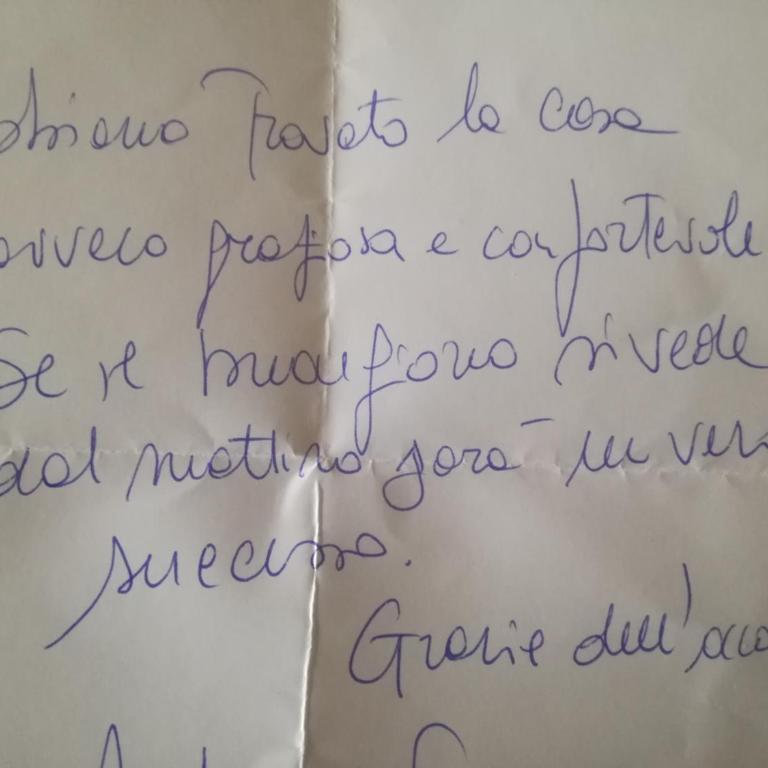 bbiamo trovato la casa
avvero graziosa e confortevole
Se il buongiorno si vede
dal mattino sarà un ver
successo.
Grazie dell'acco